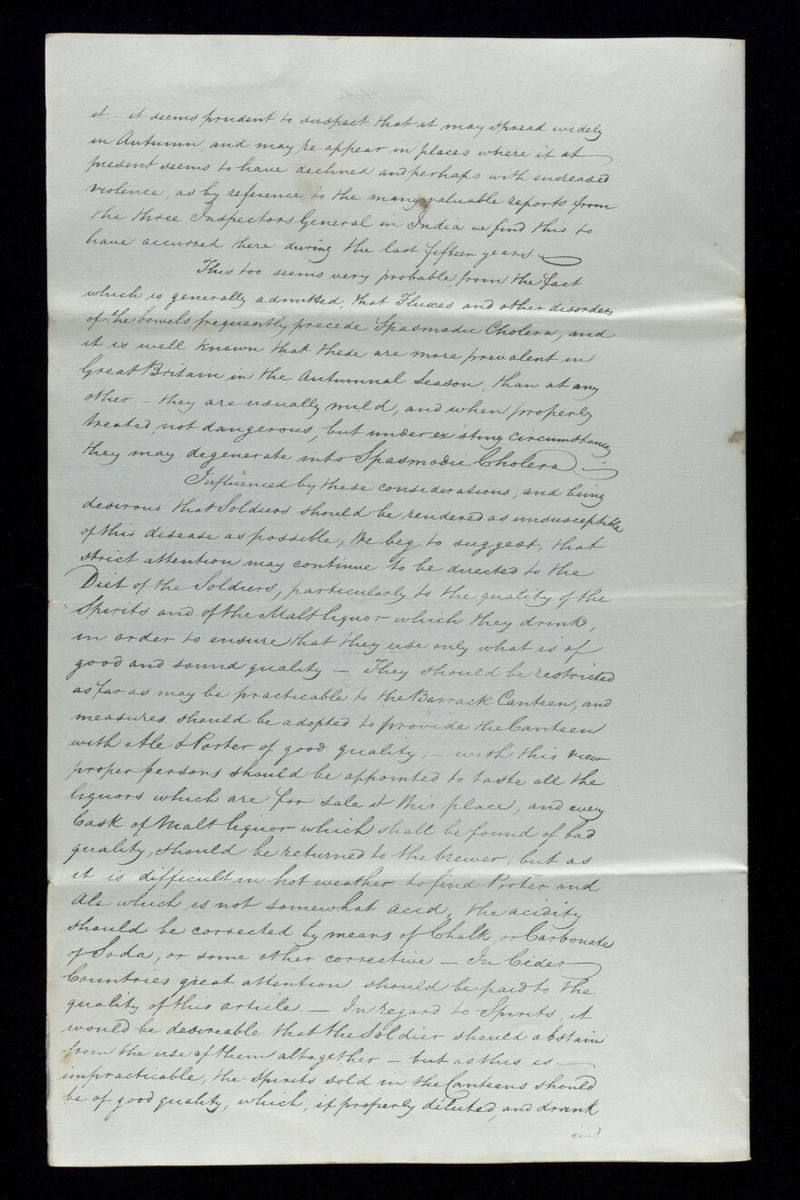 it. - it seems prudent to suspect that it may spread widely
in Autumn, and may re-appear in places where it at
present seems to have declined and perhaps with increased
violence, as by reference to the many valuable reports from
the three Inspectors General in India we find this to
have occurred there during the last fifteen years. -
This too seems very probable from the fact
which is generally admitted, that Fluxes and other disorders
of the bowels frequently precede Spasmodic Cholera, and
it is well known that these are more prevalent in
Great Britain in the Autumnal Season, than at any
other - they are usually mild, and when properly
treated, not dangerous, but under existing circumstances
they may degenerate into Spasmodic Cholera. -
Influenced by these considerations, and being
desirous that Soldiers should be rendered as unsusceptible
of this disease as possible, We beg to suggest, that
strict attention may continue to be directed to the
Diet of the Soldiers, particularly to the quality of the
Spirits and of the Malt liquor which they drink,
in order to ensure that they use only what is of
good and sound quality - They should be restricted
as far as may be practicable to the Barrack Canteen, and
measures should be adopted to provide the Canteen
with Ale & Porter of good quality; - with this view
proper persons should be appointed to taste all the
liquors which are for sale at this place, and every
Cask of Malt liquor which shall be found of bad
quality, should be returned to the brewer; but as
it is difficult in hot weather to find Porter and
Ale which is not somewhat acid, the acidity
should be corrected by means of Chalk, or Carbonate
of Soda, or some other corrective - In Cider
Countries great attention should be paid to the
quality of this article. - In regard to Spirits, it
would be desireable that the Soldier should abstain
from the use of them altogether - but as this is
impracticable, the Spirits sold in the Canteens should
be of good quality, which, if properly diluted, and drank
in